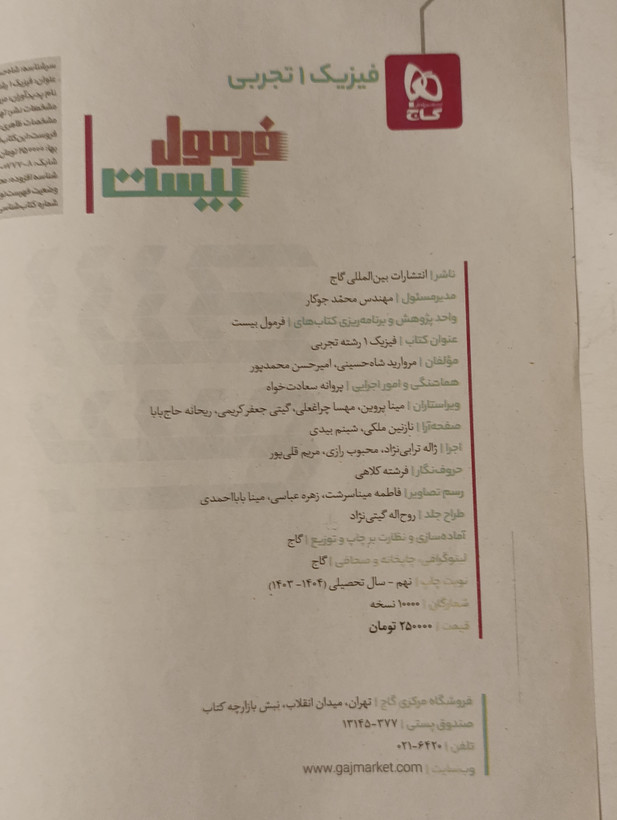 گاج
فیزیک ۱ تجربی
فرمول
بیست
سرشناسه:
عنوان: فیزیک ۱
نام پدیدآوران:
مشخصات نشر:
مشخصات ظاهری
فروست:
بها: ۲۵۰۰۰۰ تومان
شابک:
شناسه افزوده:
وضعیت فهرست
شماره کتاب‌شناسی
ناشر | انتشارات بین‌المللی گاج
مدیرمسئول | مهندس محمّد جوکار
واحد پژوهش و برنامه‌ریزی کتاب‌های | فرمول بیست
عنوان کتاب | فیزیک ۱ رشته تجربی
مؤلفان | مروارید شاه‌حسینی، امیرحسن محمدپور
هماهنگی و امور اجرایی | پروانه سعادت‌خواه
ویراستاران | مینا پروین، مهسا چراغعلی، گیتی جعفر کریمی، ریحانه حاج‌بابا
صفحه‌آرا | نازنین ملکی، شبنم بیدی
اجرا | ژاله ترابی‌نژاد، محبوب رازی، مریم قلی‌پور
حروف‌نگار | فرشته کلاهی
رسم تصاویر | فاطمه میناسرشت، زهره عباسی، مینا بابااحمدی
طراح جلد | روح‌اله گیتی‌نژاد
آماده‌سازی و نظارت بر چاپ و توزیع | گاج
لیتوگرافی، چاپخانه و صحافی | گاج
نوبت چاپ | نهم - سال تحصیلی (۱۴۰۴- ۱۴۰۳)
شمارگان | ۱۰۰۰۰ نسخه
قیمت | ۲۵۰۰۰۰ تومان
فروشگاه مرکزی گاج | تهران، میدان انقلاب، نبش بازارچه کتاب
صندوق پستی | ۳۷۷-۱۳۱۴۵
تلفن | ۶۴۲۰-۰۲۱
وب‌سایت | www.gajmarket.com